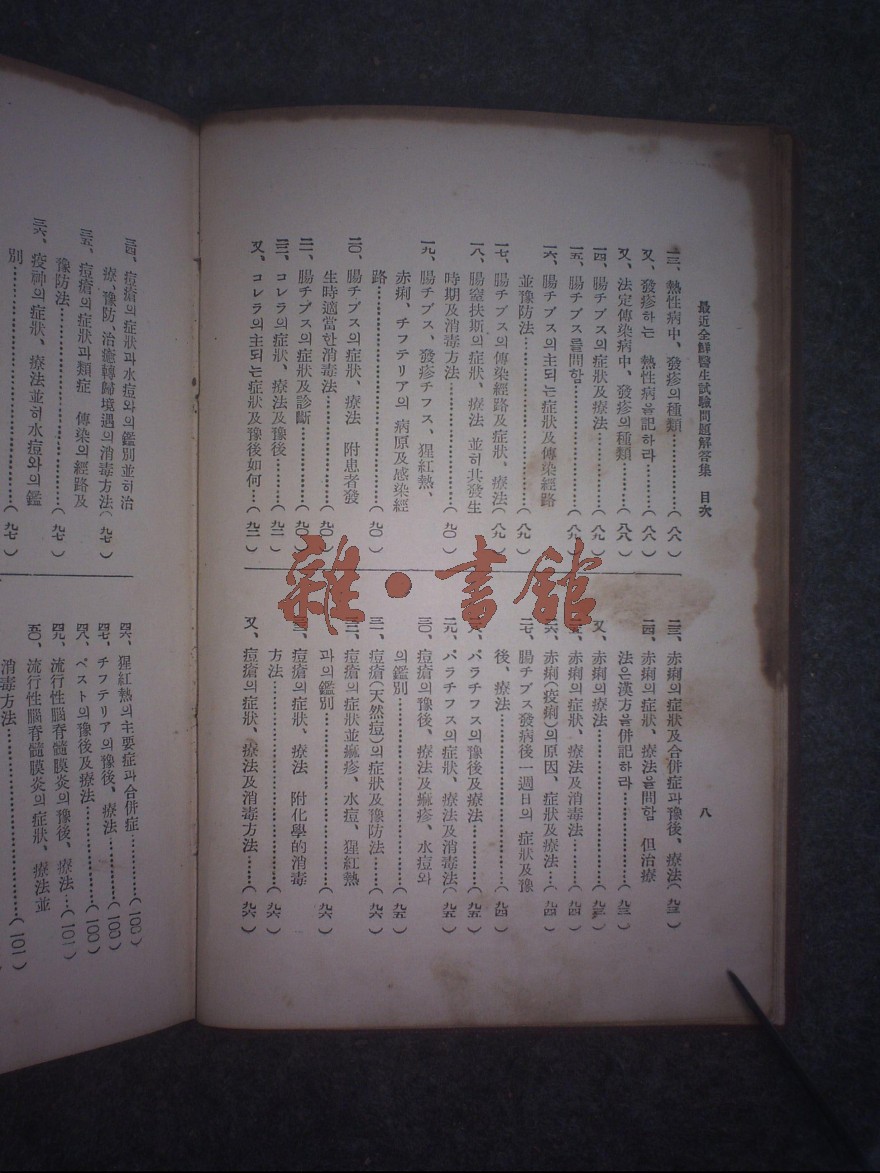 最近全鮮醫生試驗問題解答集 目次
八
一三、熱性病中、發疹의種類…………(八八)
又、發疹하는 熱性病을記하라………(八八)
又、法定傳染病中、發疹의種類………(八八)
一四、腸チブス의症狀及療法…………(八九)
一五、腸チブス를問함…………………(八九)
一六、腸チブス의主되는症狀及傳染經路
並豫防法………………………………(八九)
一七、腸チブス의傳染經路及症狀、療法(八九)
一八、腸窒扶斯의症狀、療法 並히其發生
時期及消毒方法………………………(九〇)
一九、腸チブス、發疹チフス、猩紅熱、
赤痢、チフテリア의 病原及感染經
路………………………………………(九〇)
二〇、腸チブス의症狀、療法 附患者發
生時適當한消毒法……………………(九〇)
二一、腸チブス의症狀及診斷…………(九〇)
二二、コレラ의症狀、療法及豫後……(九一)
又、コレラ의主되는症狀及豫後如何…(九二)
二三、赤痢의症狀及合併症과豫後、療法(九三)
二四、赤痢의症狀、療法을問함 但治療
法은漢方을併記하라…………………(九三)
又、赤痢의療法…………………………(九三)
二五、赤痢의症狀、療法及消毒法……(九四)
二六、赤痢(疫痢)의原因、症狀及療法…(九四)
二七、腸チブス發病後一週日의 症狀及豫
後、療法………………………………(九四)
二八、パラチフス의豫後及療法………(九五)
二九、パラチフス의症狀、療法及消毒法(九五)
三〇、痘瘡의豫後、療法及痲疹、水痘와
의鑑別…………………………………(九五)
三一、痘瘡(天然痘)의症狀及豫防法…(九六)
三二、痘瘡의症狀並痲疹、水痘、猩紅熱
과의鑑別………………………………(九六)
三三、痘瘡의症狀、療法 附化學的消毒
方法……………………………………(九六)
又、痘瘡의症狀、療法及消毒方法……(九六)
三四、痘瘡의症狀과水痘와의鑑別並히治
療、豫防、治癒轉歸境遇의消毒方法(九七)
三五、痘瘡의症狀과類症 傳染의經路及
豫防法…………………………………(九七)
三六、疫神의症狀、療法並히水痘와의鑑
別………………………………………(九七)
四六、猩紅熱의主要症과合併症………(100)
四七、チフテリア의豫後、療法………(100)
四八、ペスト의豫後及療法……………(100)
四九、流行性腦脊髓膜炎의豫後、療法…(101)
五〇、流行性腦脊髓膜炎의症狀、療法並
消毒方法………………………………(101)
雜·書舘